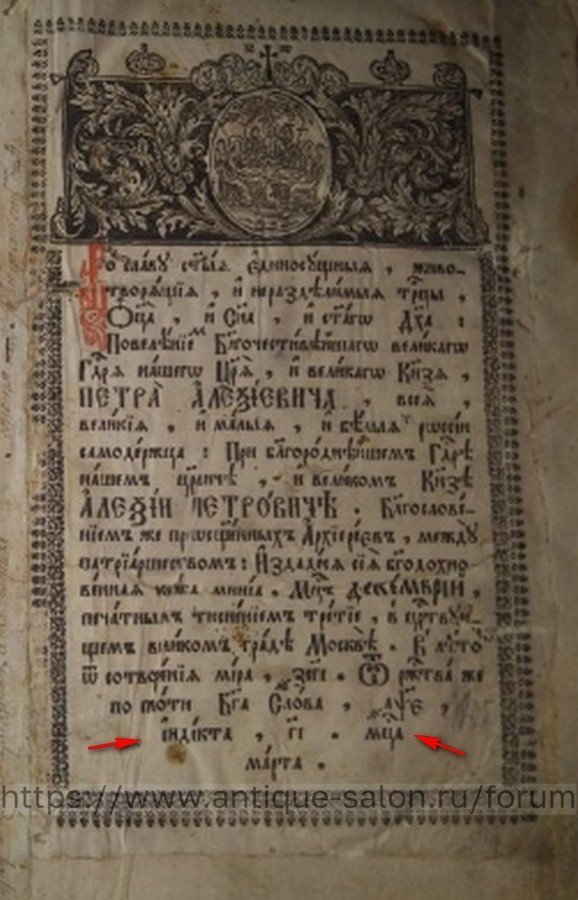 Во славу ст҃ы́ѧ единосущныѧ, живо-
творѧщїѧ, и нераздѣлимыѧ трⷪ҇цы,
Ѻц҃а, и Сн҃а, и ст҃агѡ Дх҃а:
Повелѣнїемъ Бл҃гочестивѣйшагѡ великагѡ
Гдⷭ҇рѧ нашегѡ Цр҃ѧ, и великагѡ Кн҃зѧ,
ПЕТРА АЛЕѮІЕВИЧА, всеѧ
великїѧ, и малыѧ, и бѣлыѧ рѡссїи
самодержца: При благороднѣйшемъ Гдⷭ҇рѣ
нашемъ цр҃вичѣ, и великомъ Кн҃зѣ
АЛЕѮІИ ПЕТРОВИЧѢ. Бл҃гослове-
нїемъ же преѡсщ҃енныхъ Архїереѡвъ, между
патрїаршествомъ: Издадесѧ сїѧ бг҃одохно-
венная книга минїа. Мцⷭ҇ъ ДЕКЕМВРІЙ,
печатнымъ тисненїемъ третїе, в црⷭ҇твую-
щемъ великомъ градѣ Москвѣ. В лѣто
ѿ сотворенїѧ мїра, ҂зсгі. Ѿ рⷤ҇тва же
по плоти Бг҃а Слова, ҂аѱе,
індікта, гі. мцⷭ҇а
марта.
https://www.antique-salon.ru/forum